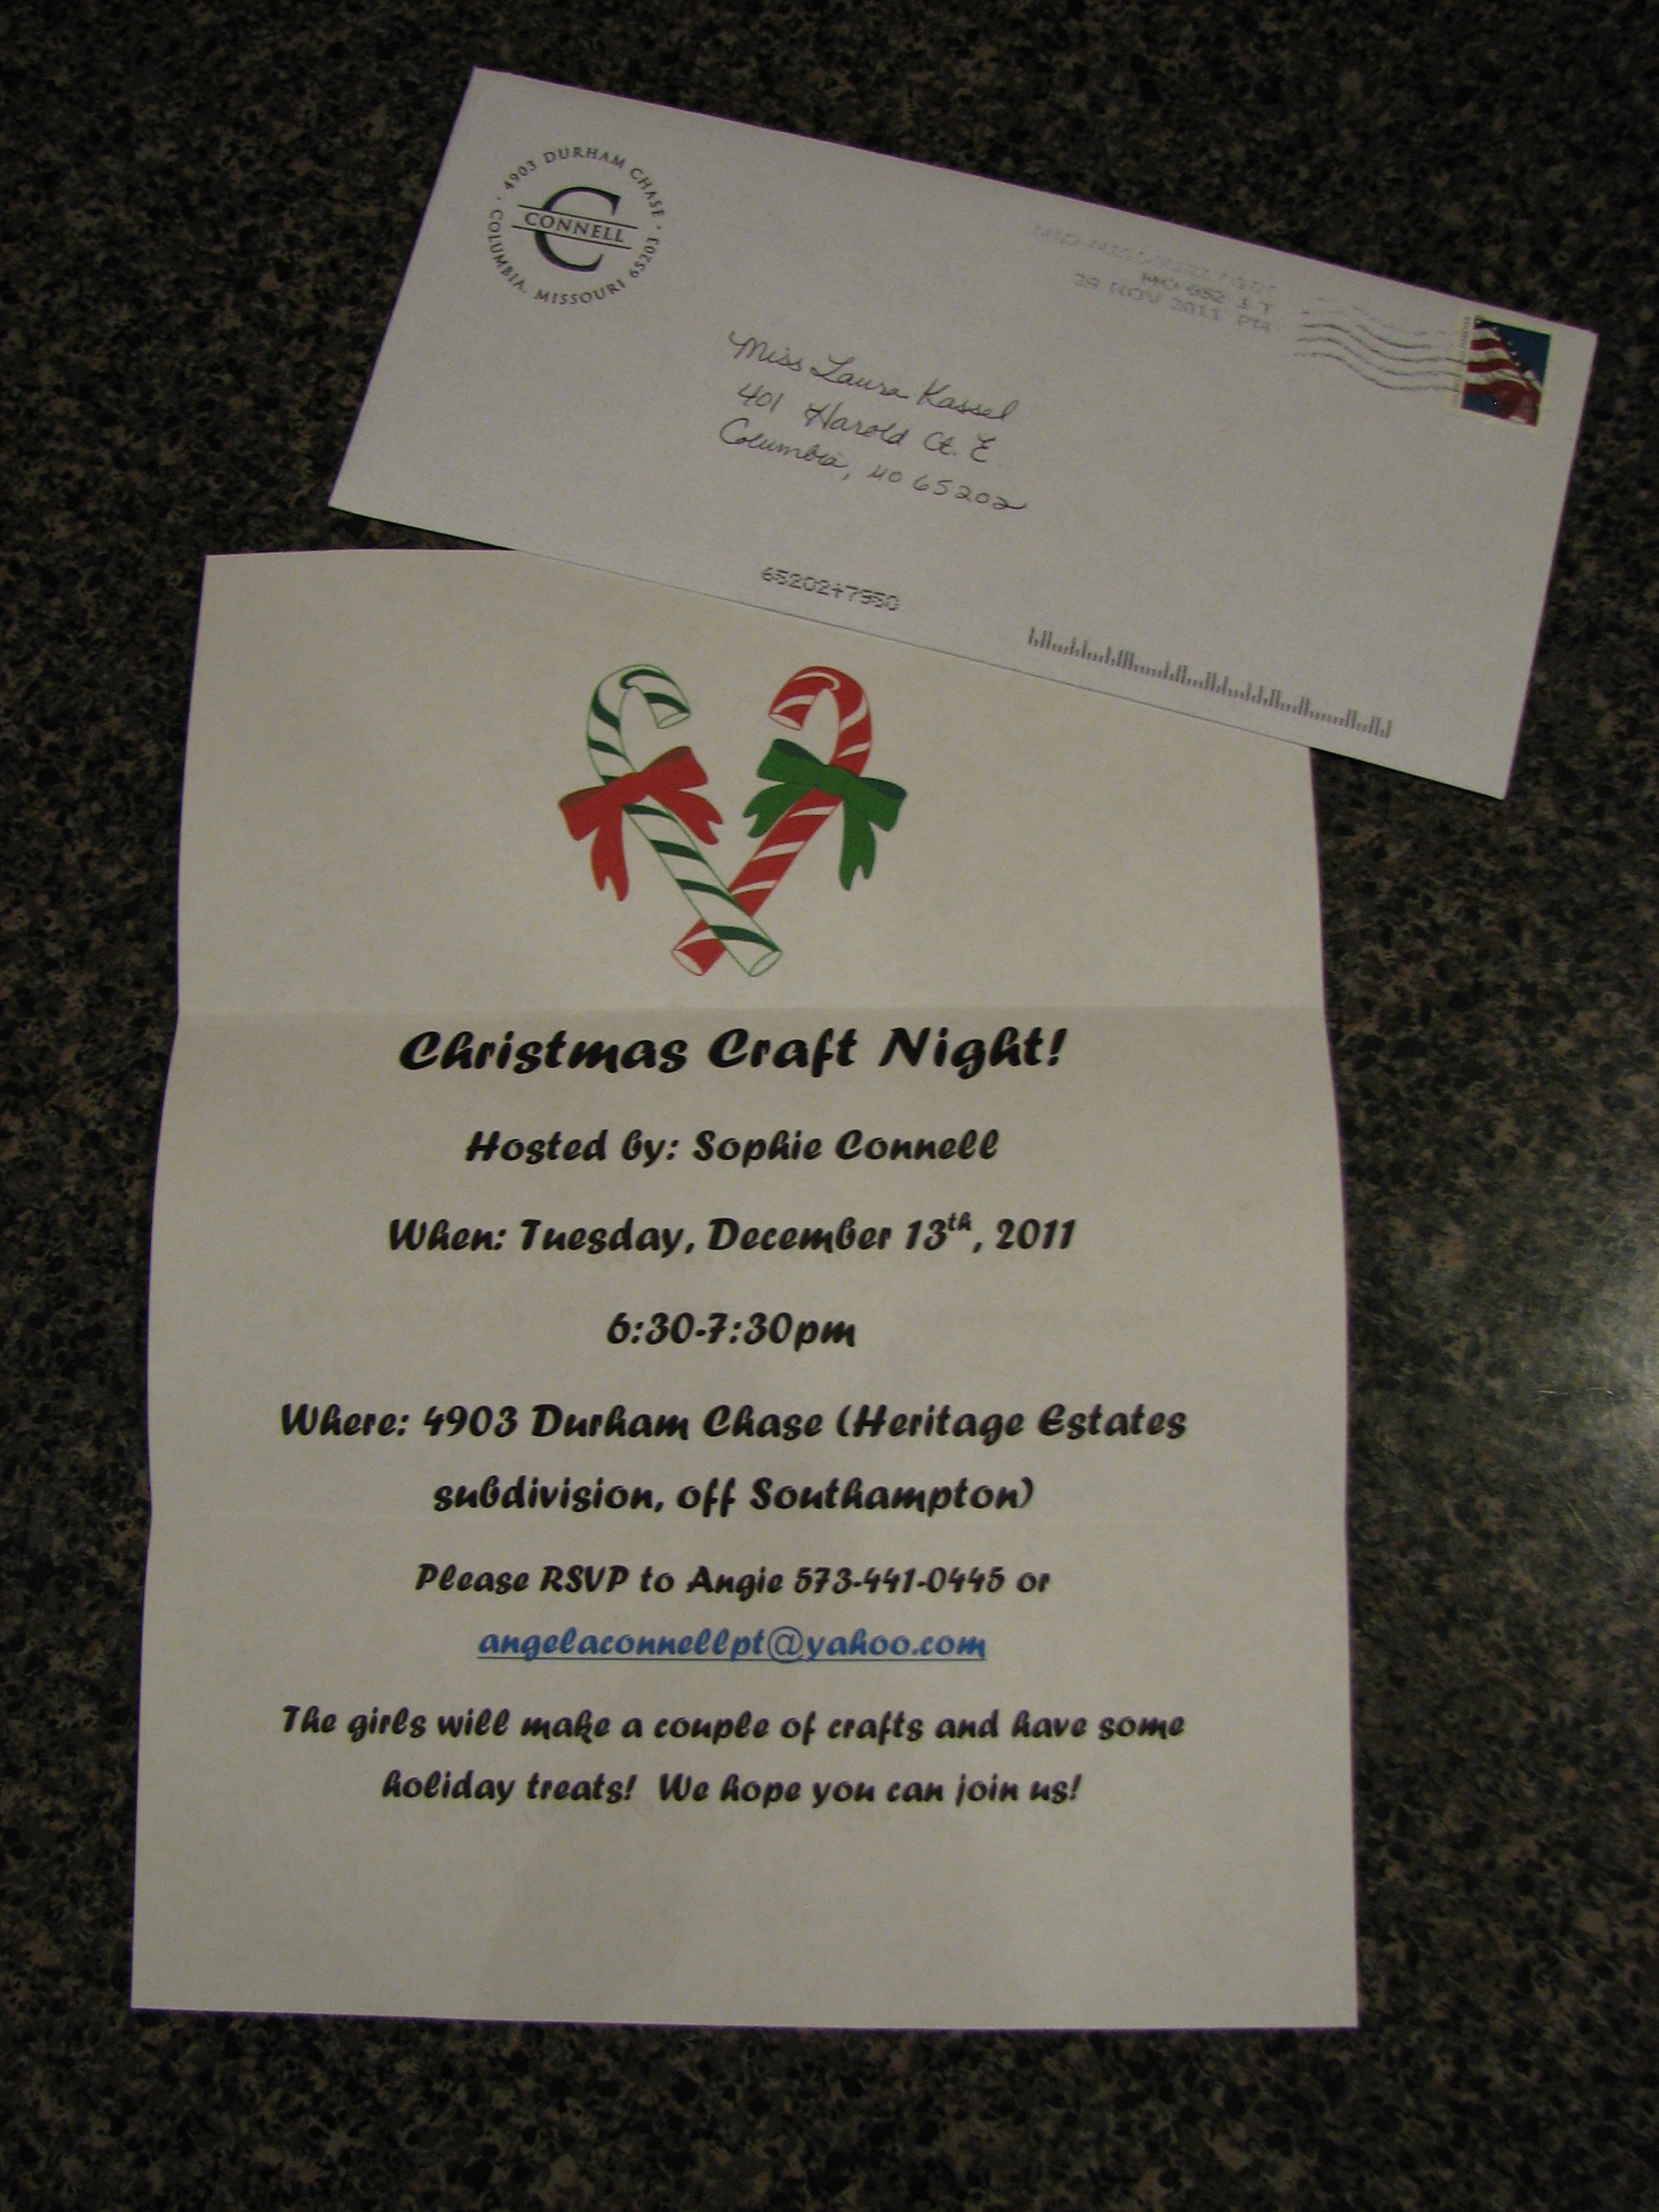 4903 DURHAM CHASE
CONNELL
COLUMBIA, MISSOURI 65203
MO 652 1 T
28 NOV 2011 PM
Miss Laura Kassel
401 Harold Ct. E
Columbia, MO 65202
65202+7950
Christmas Craft Night!
Hosted by: Sophie Connell
When: Tuesday, December 13th, 2011
6:30-7:30pm
Where: 4903 Durham Chase (Heritage Estates
subdivision, off Southampton)
Please RSVP to Angie 573-441-0445 or
angelaconnellpt@yahoo.com
The girls will make a couple of crafts and have some
holiday treats! We hope you can join us!